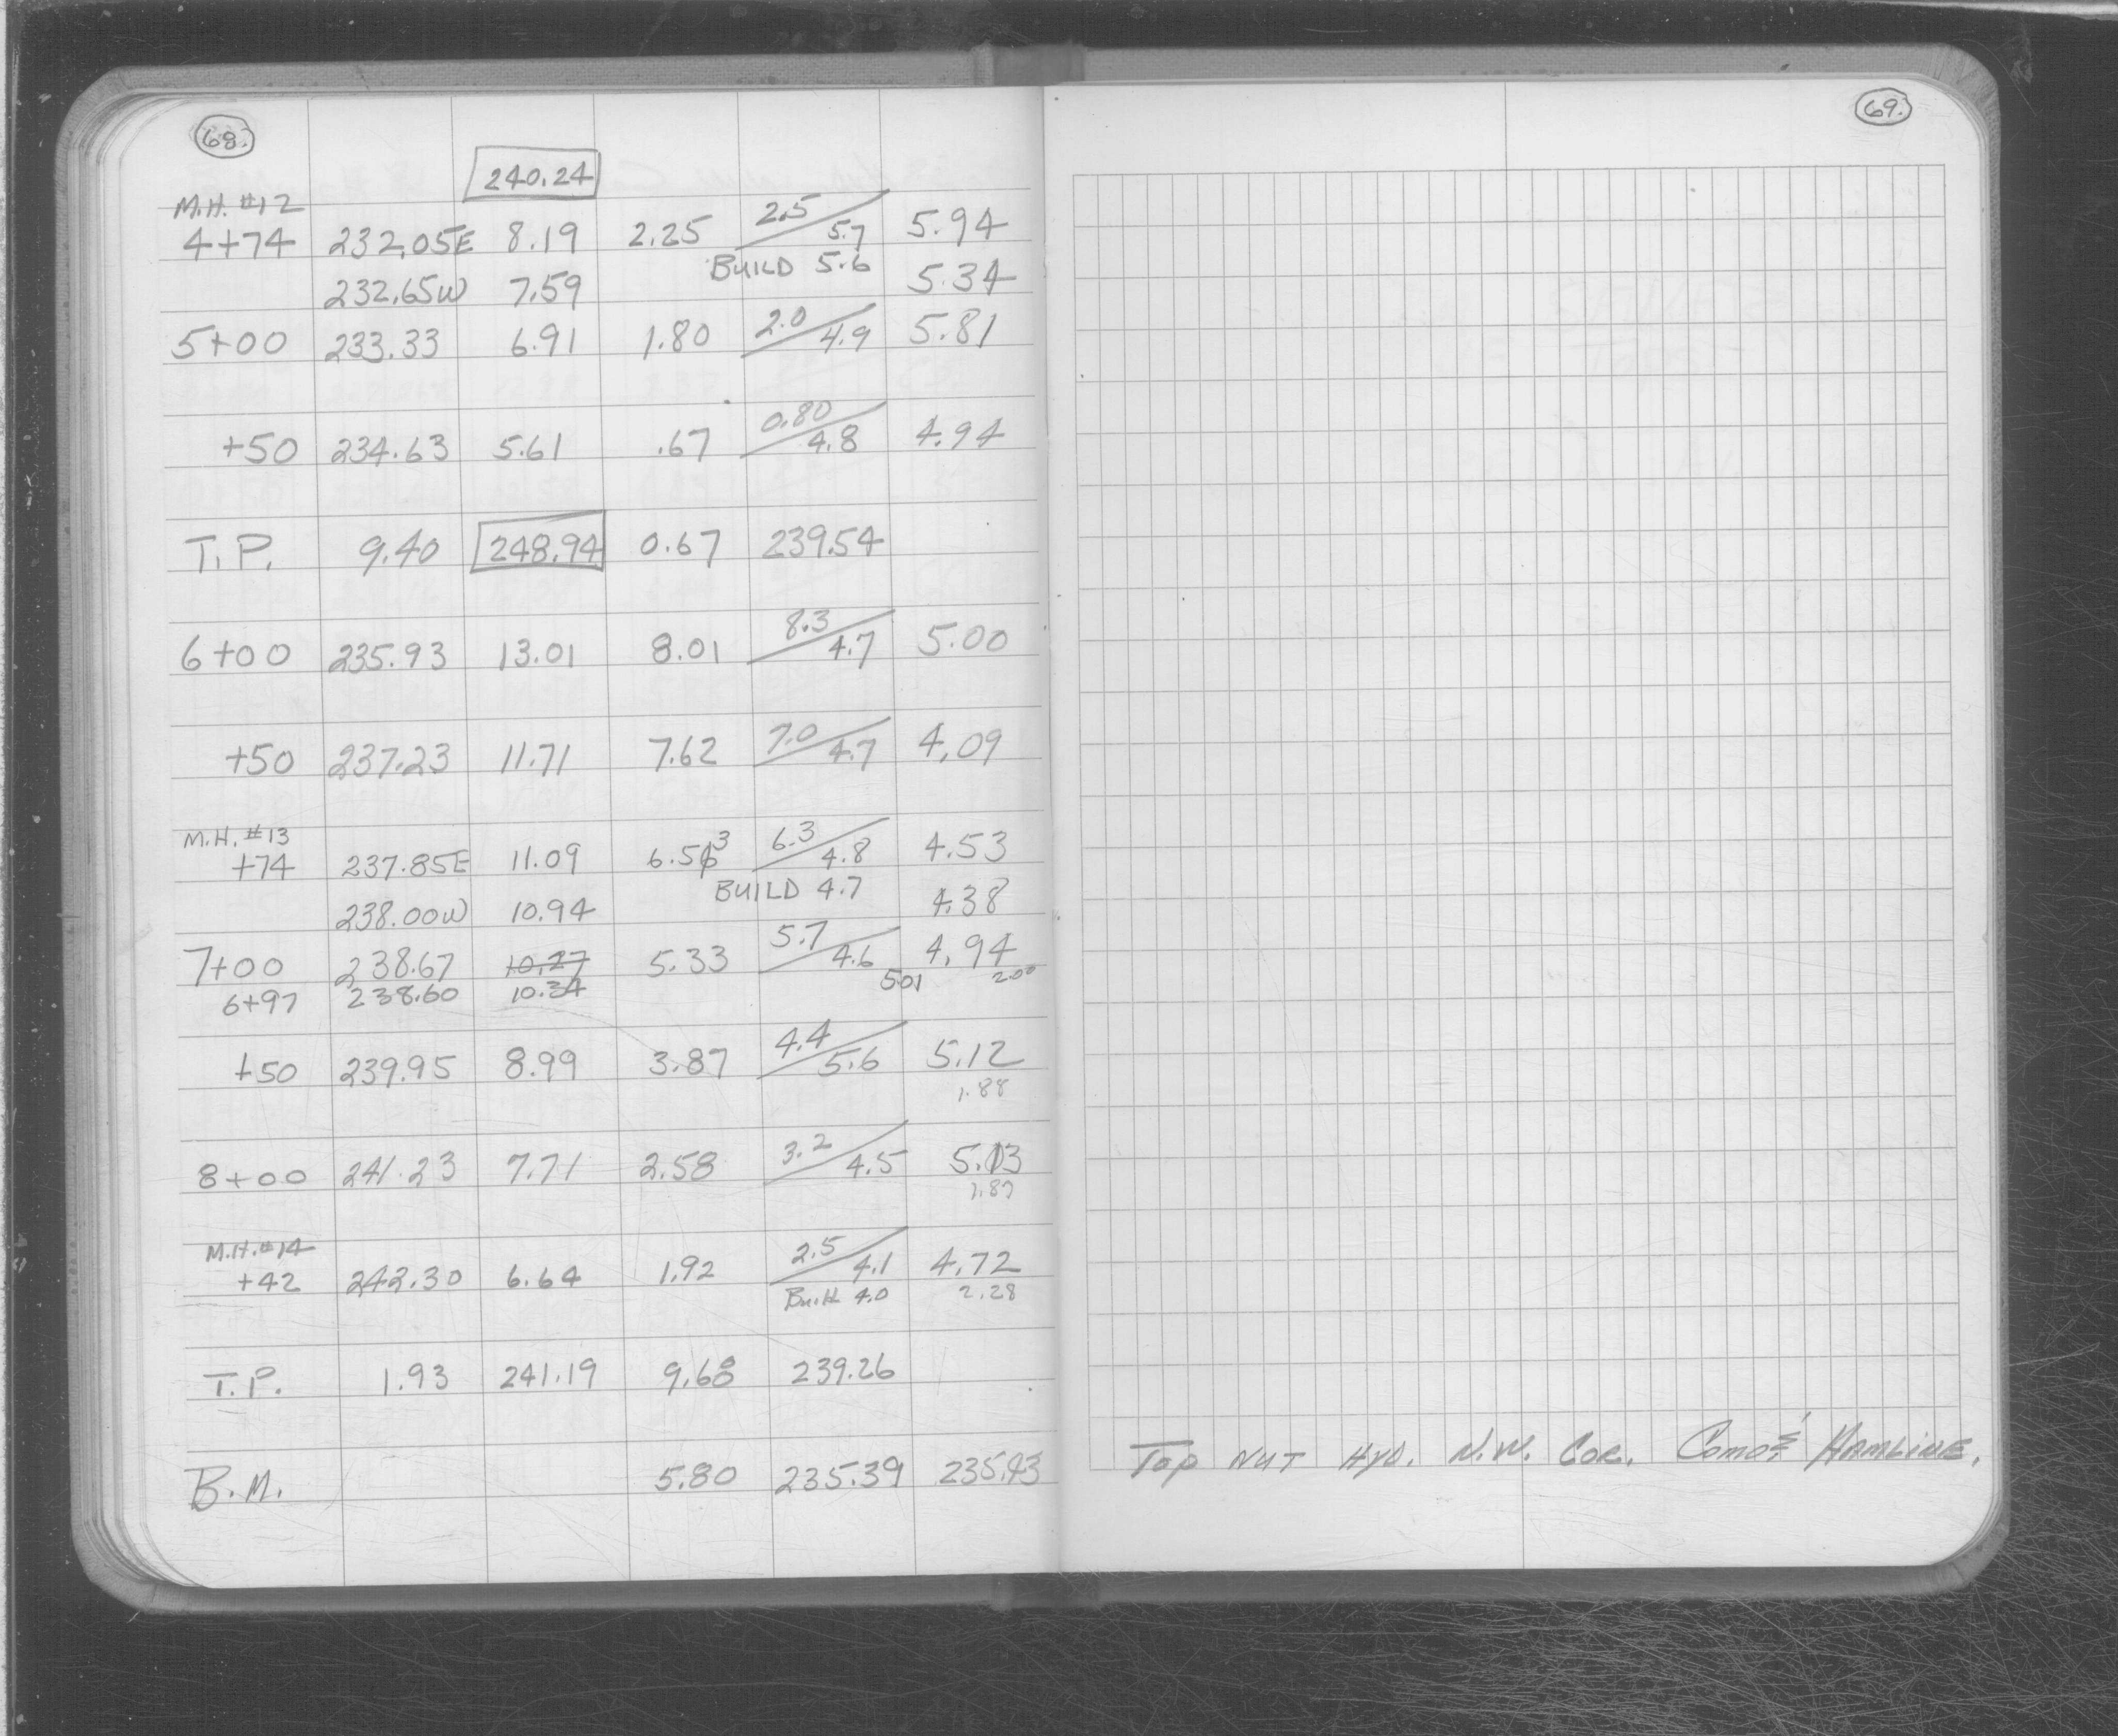 68.
240.24
M.H. #12
2.5
4+74 232.05E 8.19 2.25 5.7 5.94
BUILD 5.6
232.65W 7.59 5.34
5+00 233.33 6.91 1.80 2.0/4.9 5.81
+50 234.63 5.61 .67 0.80/4.8 4.94
T.P. 9.40 248.94 0.67 239.54
6+00 235.93 13.01 8.01 8.3/4.7 5.00
+50 237.23 11.71 7.62 7.0/4.7 4.09
M.H. #13
+74 237.85E 11.09 6.563 6.3/4.8 4.53
BUILD 4.7
238.00W 10.94 4.38
7+00 238.67 10.27 5.33 5.7/4.6 4.94
501 2.00
6+97 238.60 10.34
+50 239.95 8.99 3.87 4.4/5.6 5.12
1.88
8+00 241.23 7.71 2.58 3.2/4.5 5.13
1.87
M.H.#14
+42 242.30 6.64 1.92 2.5/4.1 4.72
Built 4.0 2.28
T.P. 1.93 241.19 9.68 239.26
B.M. 5.80 235.39 235.43
69.
Top NUT HYD. N.W. COR. COMO & HAMLINE.